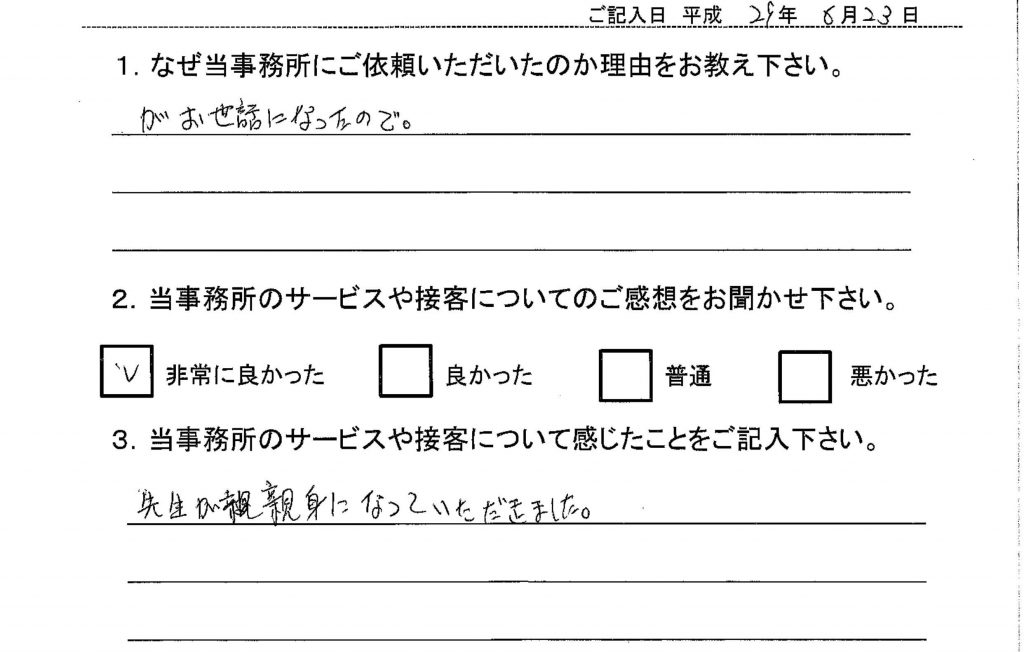 ご記入日 平成 29年 6月23日
1. なぜ当事務所にご依頼いただいたのか理由をお教え下さい。
がお世話になったので。
2. 当事務所のサービスや接客についてのご感想をお聞かせ下さい。
非常に良かった 良かった 普通 悪かった
3. 当事務所のサービスや接客について感じたことをご記入下さい。
先生が親身になっていただきました。